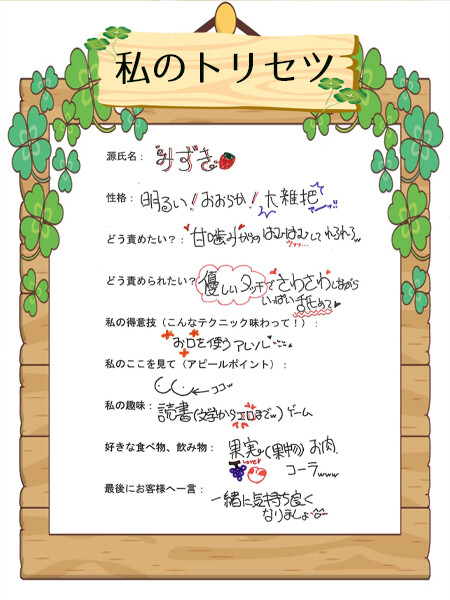 私のトリセツ
源氏名： みずき
性格： 明るい！おおらか！大雑把
どう責めたい？： 甘噛みからのはむはむしてれろれろw
どう責められたい？ 優しいタッチでさわさわしながら
いっぱい舐めて♥
私の得意技（こんなテクニック味わって！）：
お口を使うアレソレ
私のここを見て（アピールポイント）：
←ココw
私の趣味： 読書(文学からエロまでw)ゲーム
好きな食べ物、飲み物： 果実(果物)お肉
コーラwww
最後にお客様へ一言： 一緒に気持ち良く
なりましょ